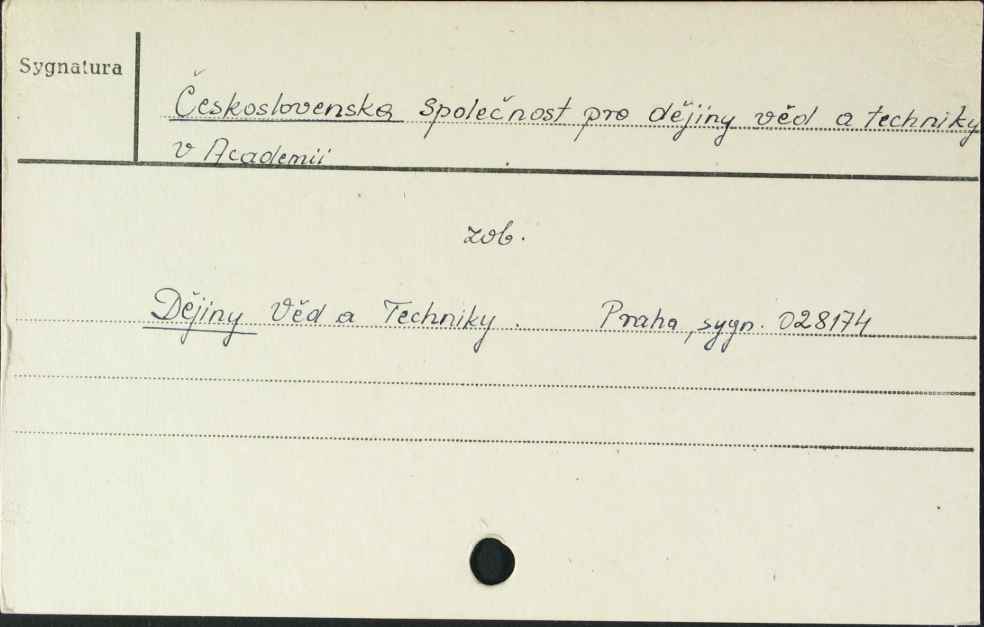 Sygnatura
Československa společnost pro dějiny věd a techniky
v Academii
zob.
Dějiny Věd a Techniky. Praha, sygn. 028174